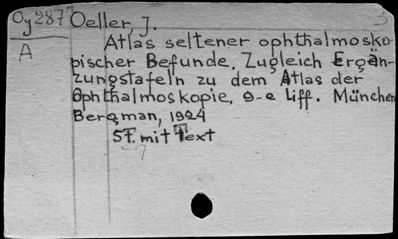 Oy 287 Oeller, J. 3
A
Atlas seltener ophthalmosko-
pischer Befunde, Zugleich Ergän-
zungstafeln zu dem Atlas der
Ophthalmoskopie, 9-e Liff. München
Bergman, 1924
5T. mit Text